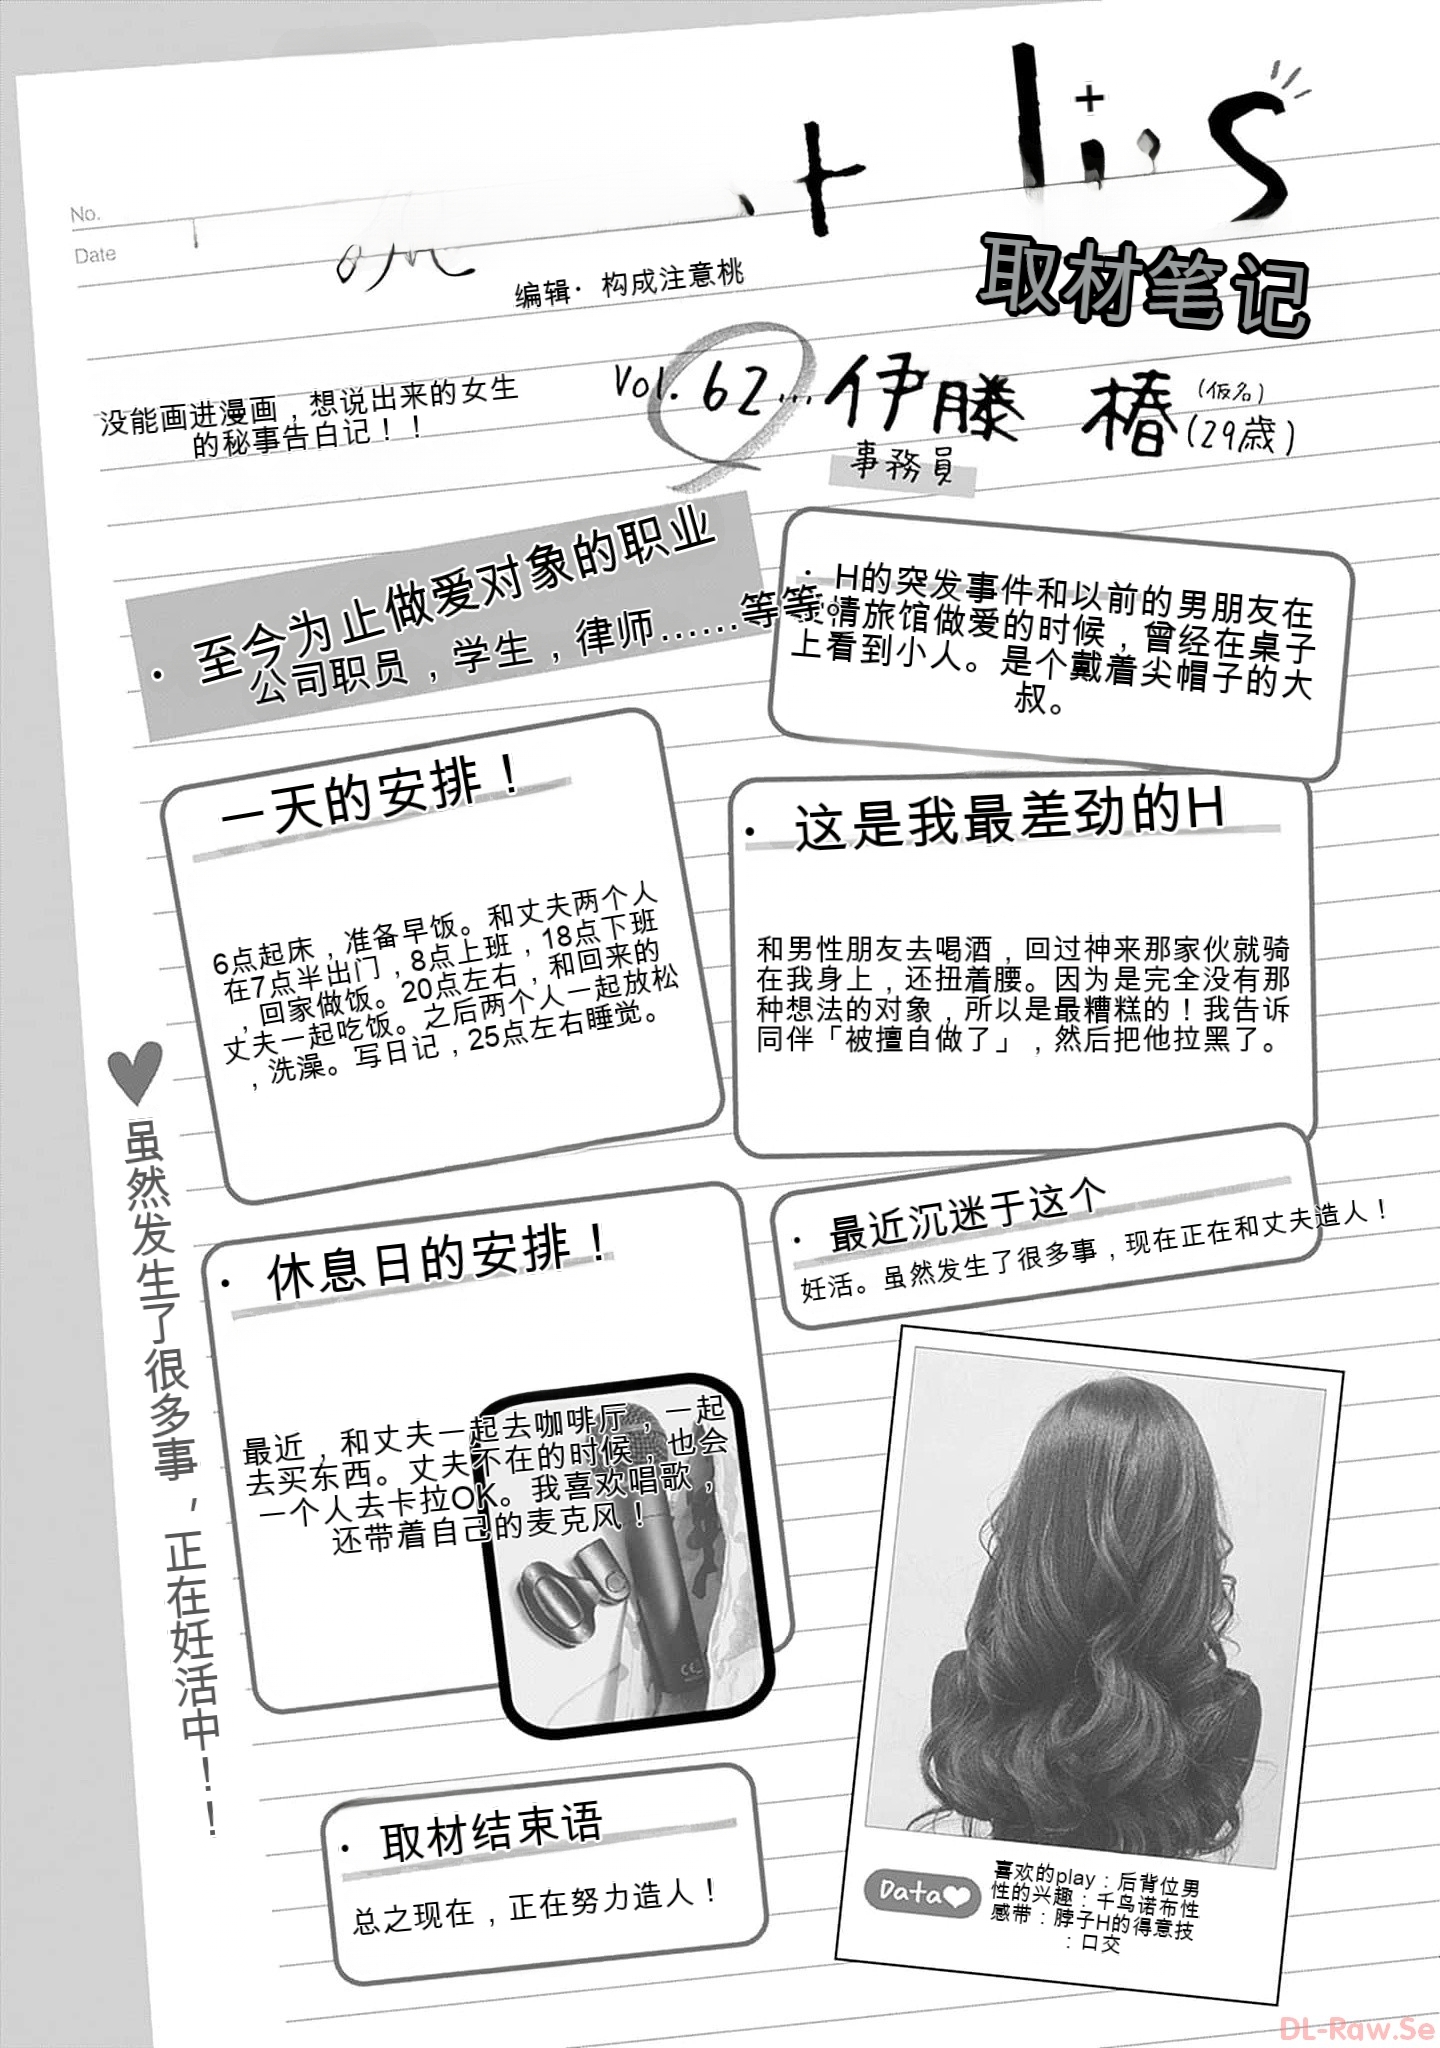 No.
Date
取材笔记
编辑：构成注意桃
没能画进漫画，想说出来的女生
的秘事告白记！！
Vol. 62… 伊藤 椿 (仮名) (29歳)
事務員
· 至今为止做爱对象的职业
公司职员，学生，律师……等等。
· H的突发事件和以前的男朋友在
情旅馆做爱的时候，曾经在桌子
上看到小人。是个戴着尖帽子的大
叔。
一天的安排！
6点起床，准备早饭。和丈夫两个人
在7点半出门，8点上班，18点下班
，回家做饭。20点左右，和回来的
丈夫一起吃饭。之后两个人一起放松
，洗澡。写日记，25点左右睡觉。
· 这是我最差劲的H
和男性朋友去喝酒，回过神来那家伙就骑
在我身上，还扭着腰。因为是完全没有那
种想法的对象，所以是最糟糕的！我告诉
同伴「被擅自做了」，然后把他拉黑了。
· 休息日的安排！
最近，和丈夫一起去咖啡厅，一起
去买东西。丈夫不在的时候，也会
一个人去卡拉OK。我喜欢唱歌，
还带着自己的麦克风！
· 最近沉迷于这个
妊活。虽然发生了很多事，现在正在和丈夫造人！
虽然发生了很多事，正在妊活中！！
· 取材结束语
总之现在，正在努力造人！
Data
喜欢的play：后背位男
性的兴趣：千鸟诺布性
感带：脖子H的得意技
：口交
DL-Raw.Se